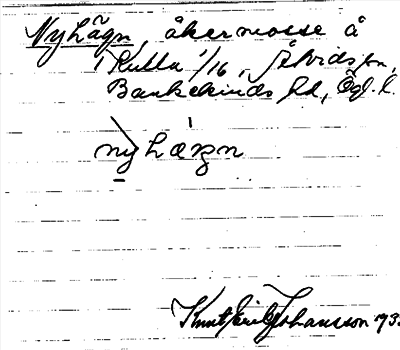 Nyhägn, åkermosse å
Kulla 1/16, Åtvids sn,
Bankekinds hd, Ögl. l.
nyhægn
Knut Erik Johansson 193